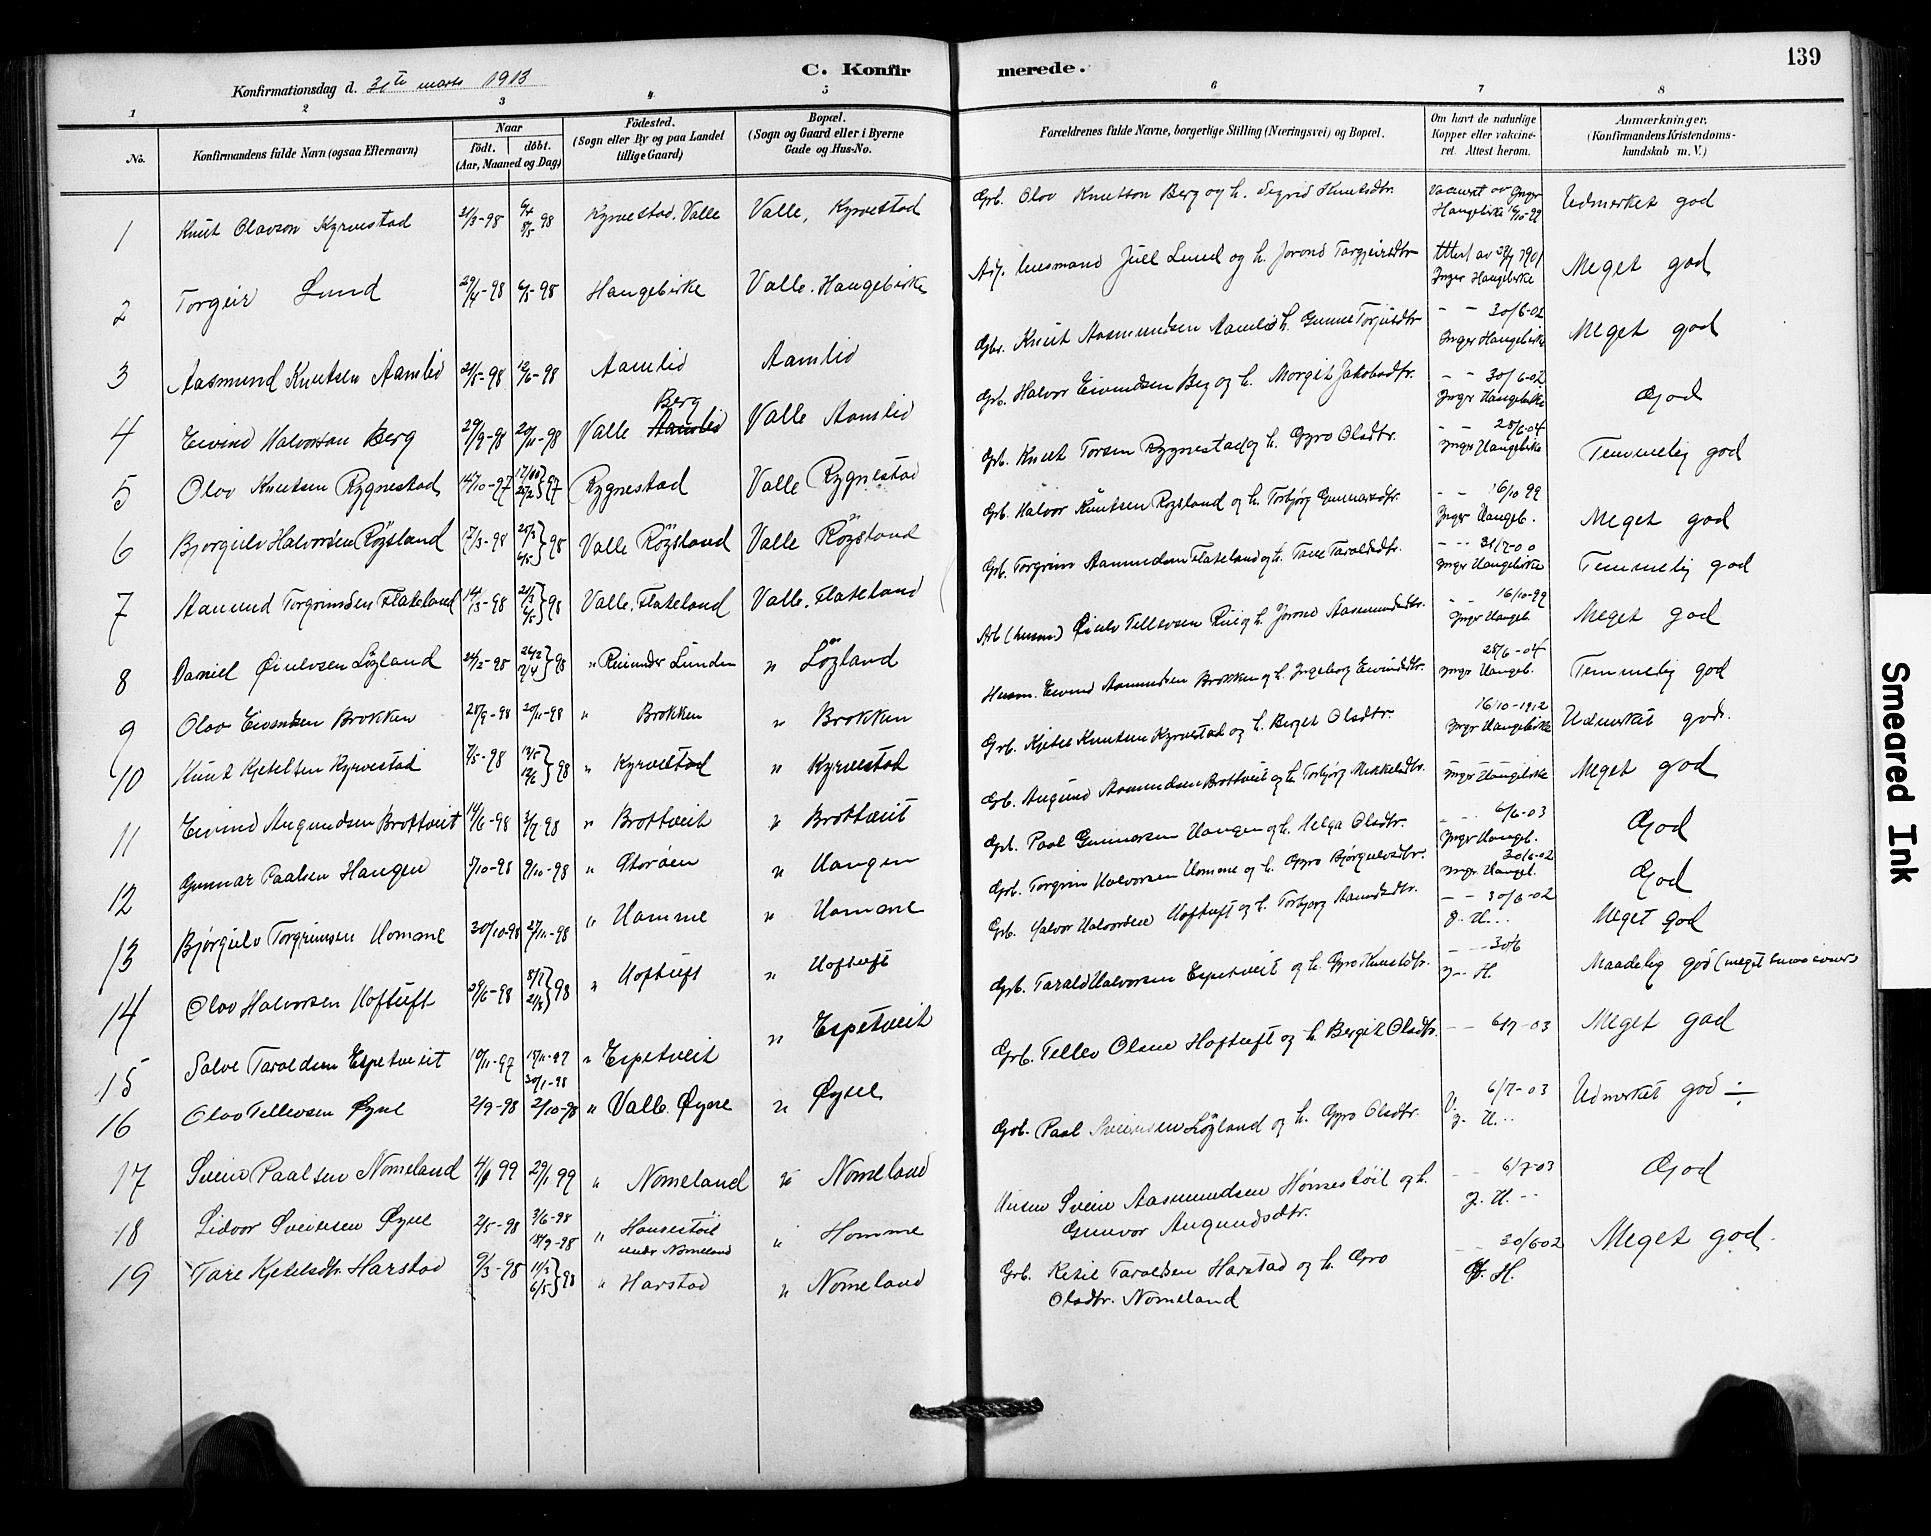 139
C. Konfirmerede.
Konfirmationsdag d. 31te marts 1913
1 2 3 4 5 6 7 8
No. Konfirmandens fulde Navn (ogsaa Efternavn) Naar Födt. döbt. (Aar, Maaned og Dag) Födested. (Sogn eller By og paa Landet tillige Gaard) Bopæl. (Sogn og Gaard eller i Byerne Gade og Hus-No. Forældrenes fulde Navne, borgerlige Stilling (Næringsvei) og Bopæl. Om havt de naturlige Kopper eller vakcineret. Attest herom. Anmærkninger. (Konfirmandens Kristendomskundskab m. V.)
1 Knut Olavson Kyrvestad 21/3-98 98 Kyrvestad, Valle Valle, Kyrvestad Grb. Olov Knutson Berg og h. Sigrid Knutsdtr. Hangebirke 16/10-99 Udmerket god
2 Torgeir Lund 29/4-98 6/5-98 Haugebirke Valle. Haugebirke Juell Lund og h. Jorond Targjeirsdtr Attest av 1901 Ynger Haugebirke Meget god
3 Aasmund Knutsen Aamlid 21/5-98 12/6-98 Aamlid Aamlid Gbr. Knut Aasmundsen Aamlid h. Gunne Torjusdtr - - 30/6-02 Ynger Haugebirke Meget god
4 Eivind Halvorson Berg 29/9-98 20/11-98 Valle Aamlid Berg Valle Aamlid Grb. Halvor Eivindsen Berg og h. Morgit Jakobsdtr. - - 30/6-02 Ynger Haugebirke God
5 Olov Knutsen Rygnestad 14/10-97 97 Rygnestad Valle Rygnestad Grb. Knut Torsen Rygnestad og h. Gyro Olsdtr. - - 28/6-04 Ynger Haugebirke Temmelig god
6 Bjorgulv Halvorsen Rögsland 17/3-98 98 Valle Rögsland Valle Rögsland Grb. Halvor Knutsen Rogsland og h. Torbjørg Gunnarsdtr. - - 16/10 99 Ynger Haugeb. Meget god
7 Aamund Torgrimsen Flateland 14/3-98 98 Valle, Flateland Valle. Flateland Grb. Torgrim Aamundsen Flateland og h. Tone Taraldsdtr. - - 31/7-00 Ynger Haugebirke Temmelig god
8 Daniel Øiulvsen Løgland 98 " under Lunden " Løgland Arb (husm.) Øiulv Tellevsen og h. Jorond Aasmundsdtr. - - 16/10-99 Ynger Haugeb. Meget god
9 Olov Eivindsen Brokken 28/9-98 20/11-98 " Brokken " Brokken Husm. Eivind Aamundsen Brokken og h. Ingeborg Eivindsdtr. 28/6-04 Ynger Haugeb. Temmelig god
10 Knut Kjetilsen Kyrvestad 7/5-98 98 " Kyrvestad " Kyrvestad Grb. Kjetil Knutsen Kyrvestad og h. Berget Olsdtr. 16/10-1912 Ynger Haugebirke Udmerket god.
11 Eivind Augundsen Brottveit 14/6-98 3/7 98 " Brottveit " Brottveit Grb. Augund Aamundsen Brottveit og h. Torbjørg Mikkelsdtr. Ynger Haugebirke Meget god
12 Gunnar Paalsen Haugen 5/10-98 9/10-98 " Storøen " Haugen Grb. Paal Gunnarsen Haugen og h. Helga Olsdtr. - - 6/6-03 Ynger Haugeb. God
13 Bjørgulv Torgrimsen Homme 30/10-98 27/11-98 " Homme " Homme Grb. Torgrim Halvorsen Homme og h. Gyro Bjørgulvsdtr. 30/6-02 Ynger Haugeb. God
14 Olov Halvorsen Hoftuft 29/6-98 98 " Hoftuft " Hoftuft Grb. Halvor Halvorsen Hoftuft og h. Torbjorg Aamundsdtr. - - 30/6-02 Y. H. . . Meget god
15 Salve Taraldsen Espetveit 10/11-97 18/11-97 30/1-98 " Espetveit " Espetveit Grb. Tarald Halvorsen Espetveit og h. Gyro Knutsdtr. - - 30/6 Y - H. Maadelig god (meget
16 Olov Tellevsen Øyne 2/9-98 2/10-98 " Valle. Øyne " Øyne Grb. Tellev Olsen Hoftuft og h. Bergit Olsdtr. - - 6/7-03 Meget god
17 Svein Paalsen Nomeland 4/1 99 29/1 99 " Nomeland " Nomeland Grb. Paal Sveinsen Løgland og h. Gyro Olsdtr. V. 6/7-03 Y. H. . . Udmerket god ÷
18 Sidvor Sveinsen Øyne 2/5-98 3/6-98 18/9-98 " under Nomeland " Homme Svein Aasmundsen Hønnestöil og h. Gunvor Augundsdtr. - - 6/7-03 Y. H. - - God
19 Tare Kjetelsdtr. Harstad 9/3-98 11/3 6/5 98 " Harstad " Nomeland Grb. Ketil Taraldsen Harstad og h. Gyro Olsdtr. Nomeland - - 30/602 Y. H. Meget god.
Smeared Ink